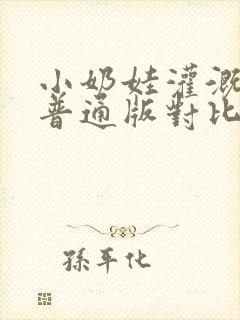 小奶娃灌溉
普通版對比
孫平化